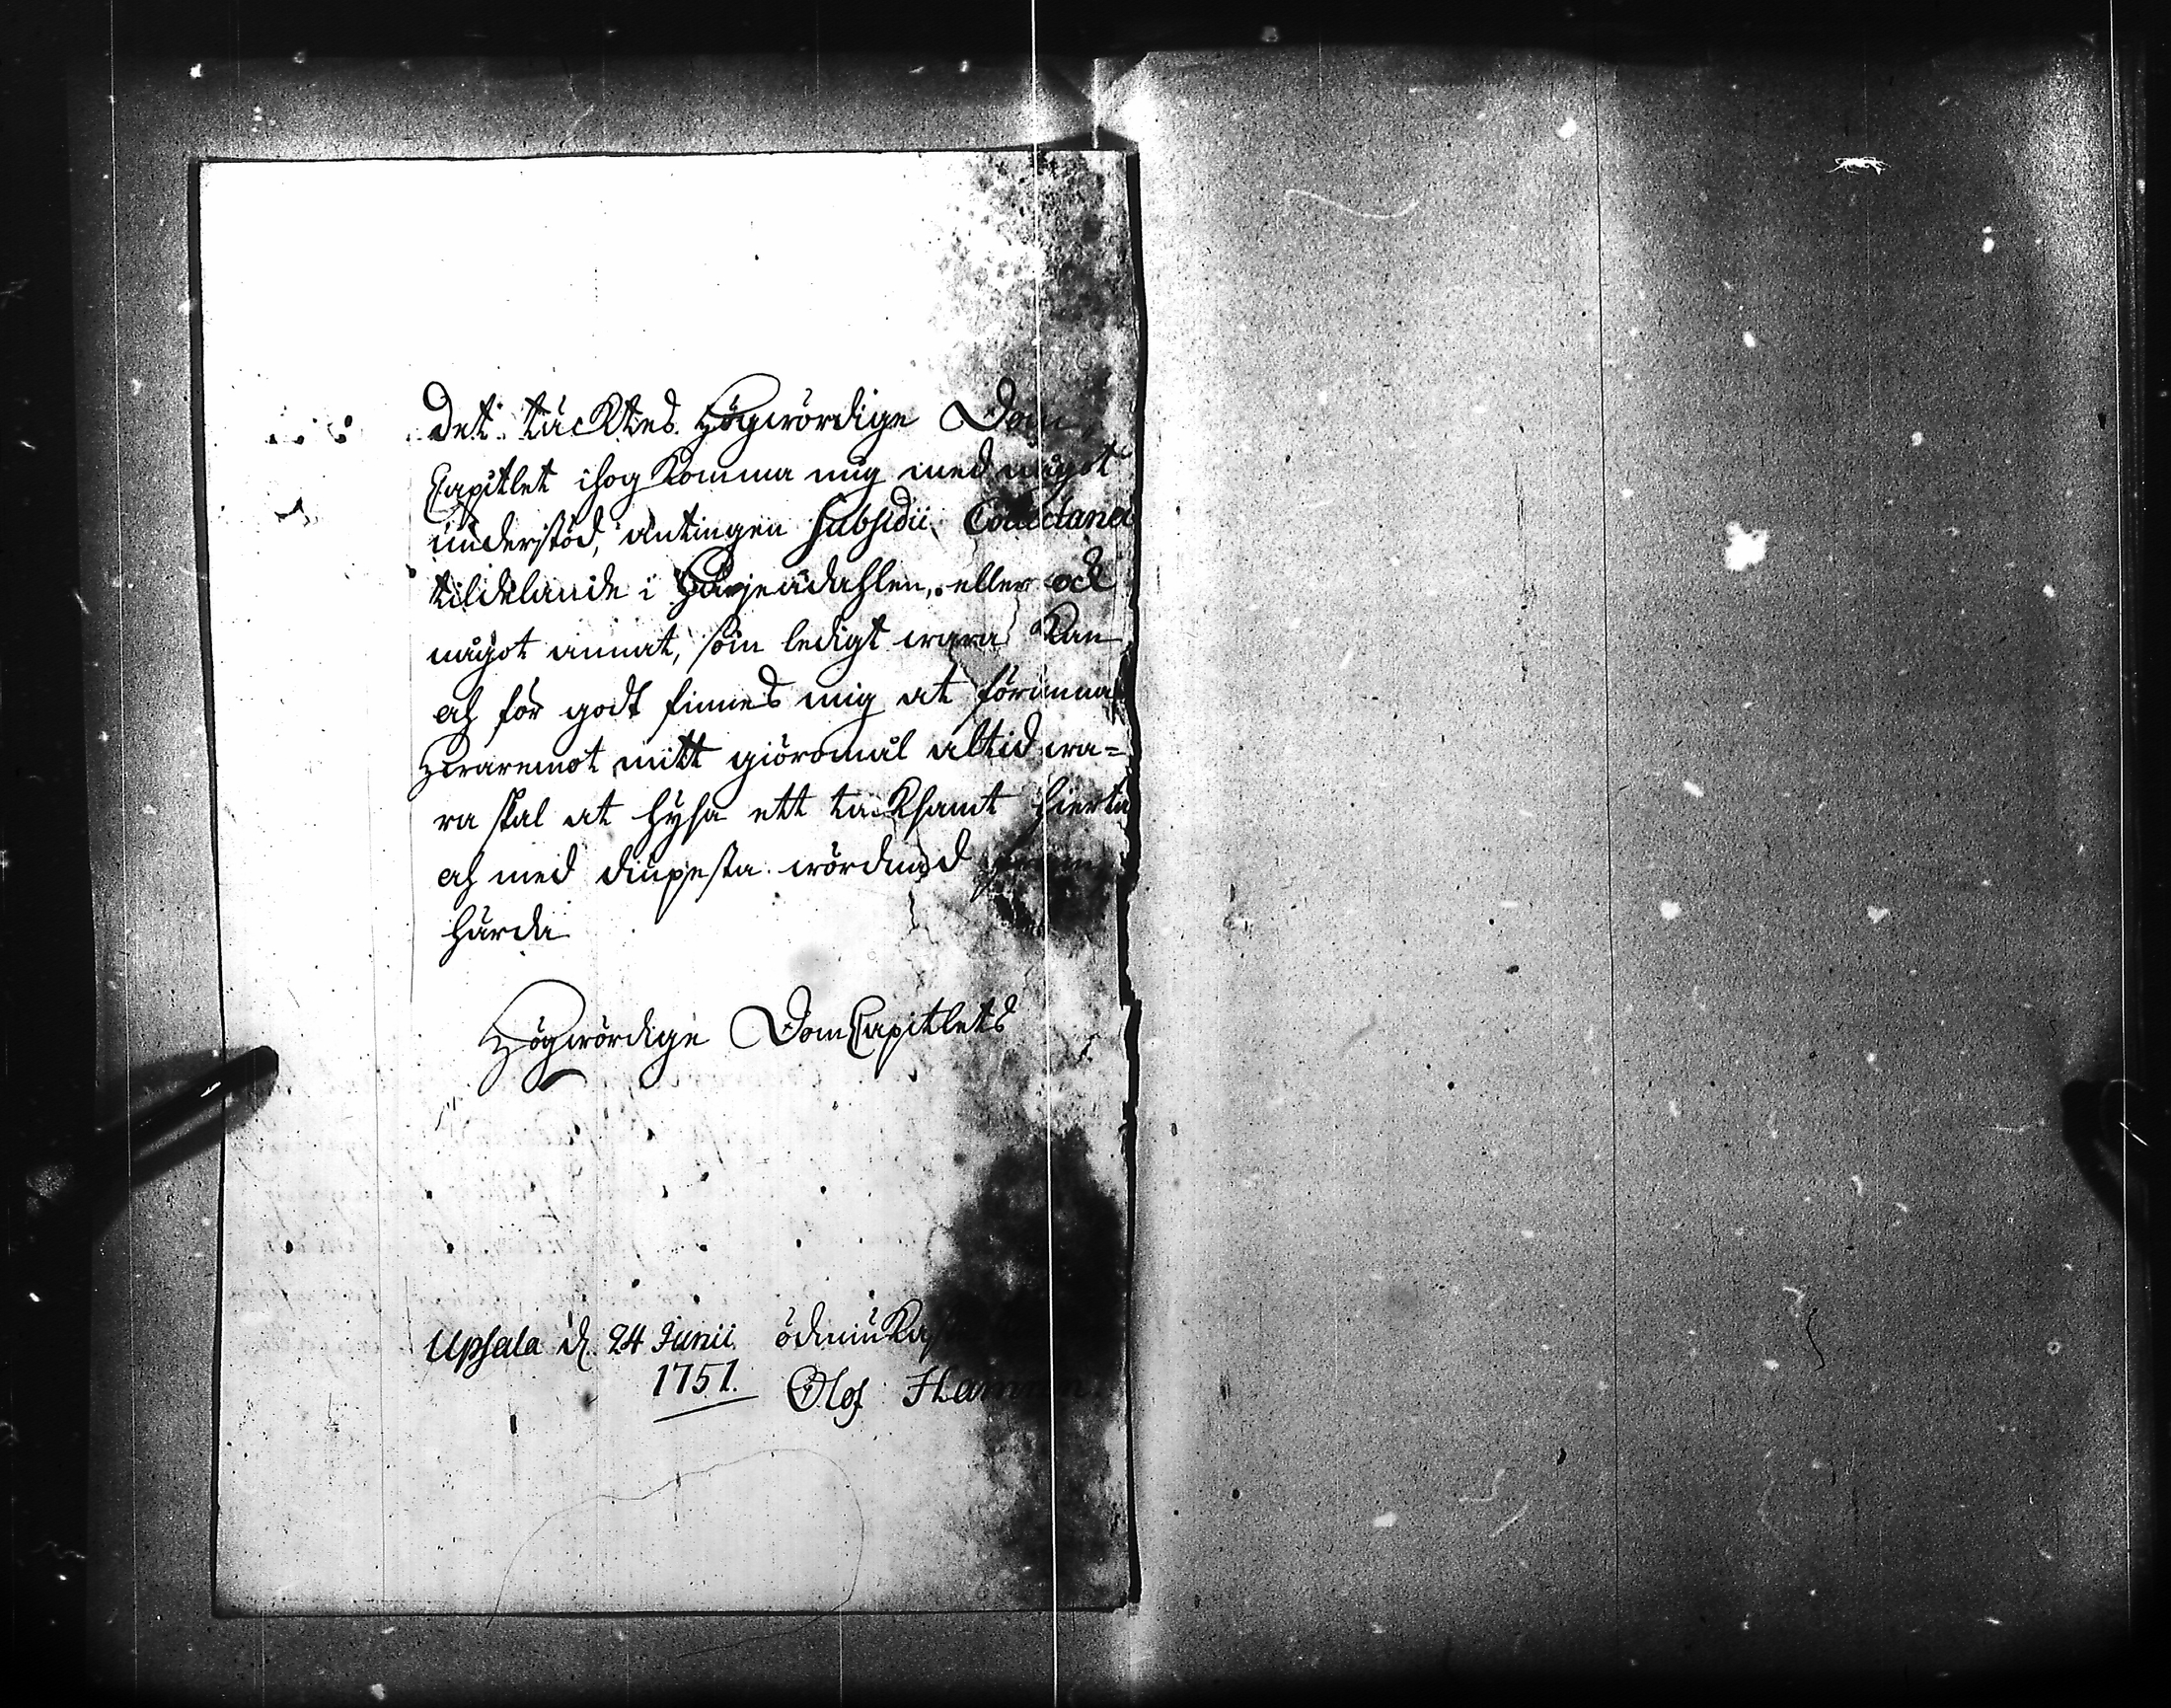 Det täcktes Högwördige Dom
Capitlet ihog komma mig med något
understöd, antingen Subsidii Collectanei
tildelande i Härjeådahlen, eller ock
något annat, som ledigt wara kan
och för godt finnes mig at förunna
Hwaremot mitt giöromål altid wa=
ra skal at hysa ett tacksamt hierta
och med diupesta wördnad fram
härda
Högwördige DomCapitlets
Upsala d. 24 Junii ödmiukaste
1751. Olof